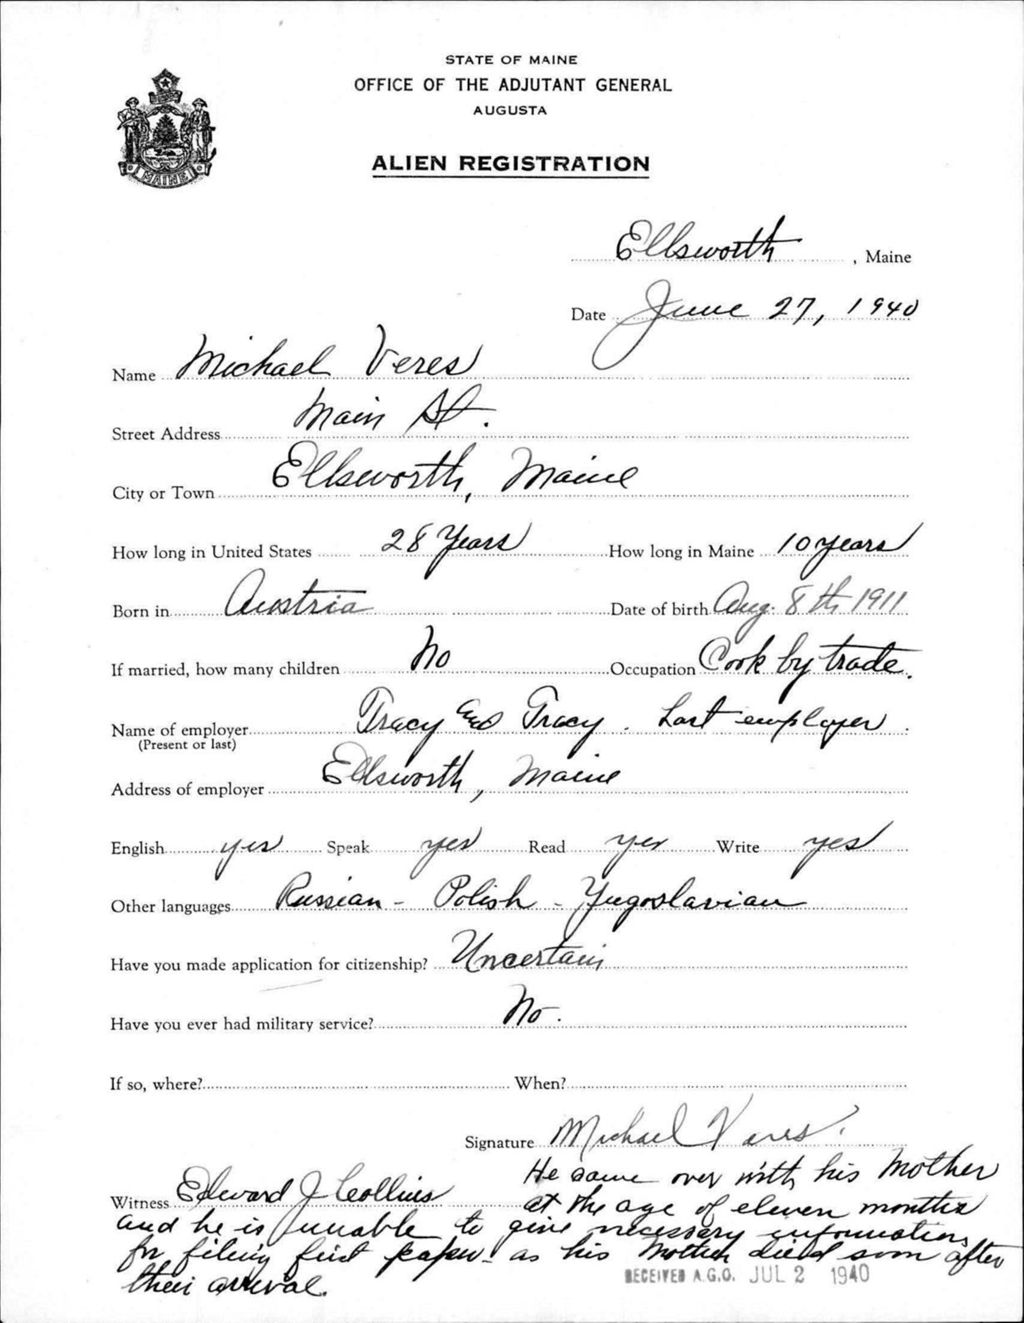 STATE OF MAINE
OFFICE OF THE ADJUTANT GENERAL
AUGUSTA
ALIEN REGISTRATION
MAINE
Ellsworth, Maine
Date June 27, 1940
Name Michael Veres
Street Address Main St.
City or Town Ellsworth, Maine
How long in United States 28 Years How long in Maine 10 years
Born in Austria Date of birth Aug. 8th 1911
If married, how many children No Occupation Cook by trade.
Name of employer Tracy and Tracy. Last employer.
(Present or last)
Address of employer Ellsworth, Maine
English yes Speak yes Read yes Write yes
Other languages Russian - Polish - Yugoslavian
Have you made application for citizenship? Uncertain
Have you ever had military service? No.
If so, where? When?
Signature Michael Vares.
He came over with his Mother
Witness Edward J Collins at the age of eleven months
and he is unable to give necessary information
for filing first paper - as his Mother died soon after
their arrival.
RECEIVED A.G.O. JUL 2 1940